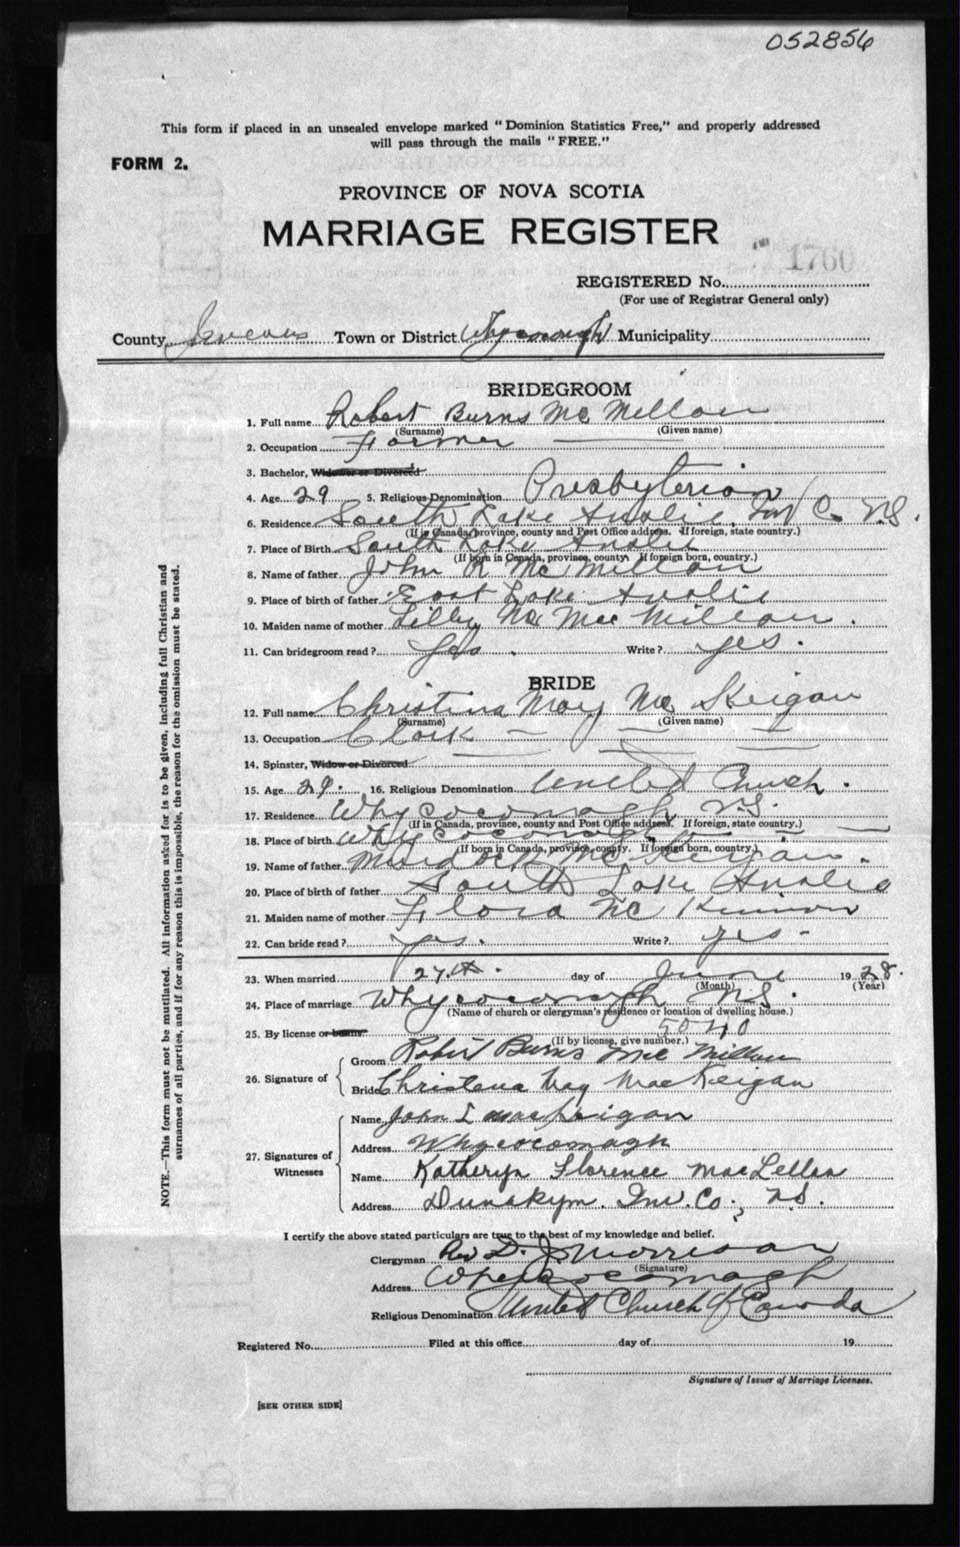 052856
This form if placed in an unsealed envelope marked "Dominion Statistics Free," and properly addressed
will pass through the mails "FREE."
FORM 2.
PROVINCE OF NOVA SCOTIA
MARRIAGE REGISTER
1760
REGISTERED No.
(For use of Registrar General only)
County Inverness Town or District Whycocomagh Municipality
BRIDEGROOM
1. Full name Robert Burns McMillan
(Surname) (Given name)
2. Occupation Farmer
3. Bachelor, Widower or Divorced
4. Age 29 5. Religious Denomination Presbyterian
6. Residence South Lake Ainslie Inv Co. N.S.
(If in Canada, province, county and Post Office address. If foreign, state country.)
7. Place of Birth South Lake Ainslie
(If born in Canada, province, county. If foreign born, country.)
8. Name of father John R McMillan
9. Place of birth of father East Lake Ainslie
10. Maiden name of mother Lilly Mac Millan.
11. Can bridegroom read? Yes. Write? yes.
BRIDE
12. Full name Christina May Mc Keigan
(Surname) (Given name)
13. Occupation Clerk
14. Spinster, Widow or Divorced
15. Age 29. 16. Religious Denomination United Church.
17. Residence Whycocomagh N.S.
(If in Canada, province, county and Post Office address. If foreign, state country.)
18. Place of birth Whycocomagh
(If born in Canada, province, county. If foreign born, country.)
19. Name of father Murdock Mc Keigan.
20. Place of birth of father South Lake Ainslie
21. Maiden name of mother Flora Mc Kinnon
22. Can bride read? yes. Write? yes-
23. When married 27th. day of June 1928.
(Month) (Year)
24. Place of marriage Whycocomagh N.S.
(Name of church or clergyman's residence or location of dwelling house.)
25. By license or banns 5040
(If by license, give number.)
26. Signature of
Groom Robert Burns Mc Millan
Bride Christena May MacKeigan
27. Signatures of
Witnesses
Name John MacKeigan
Address Whycocomagh
Name Katheryn Florence MacLellan
Address Dunakyn. Inv. Co., N.S.
I certify the above stated particulars are true to the best of my knowledge and belief.
Clergyman Rev D. J. Morrison
(Signature)
Address Whycocomagh
Religious Denomination United Church of Canada
Registered No. Filed at this office day of 19
Signature of Issuer of Marriage Licenses.
[SEE OTHER SIDE]
NOTE.—This form must not be mutilated. All information asked for is to be given, including full Christian and
surnames of all parties, and if for any reason this is impossible, the reason for the omission must be stated.